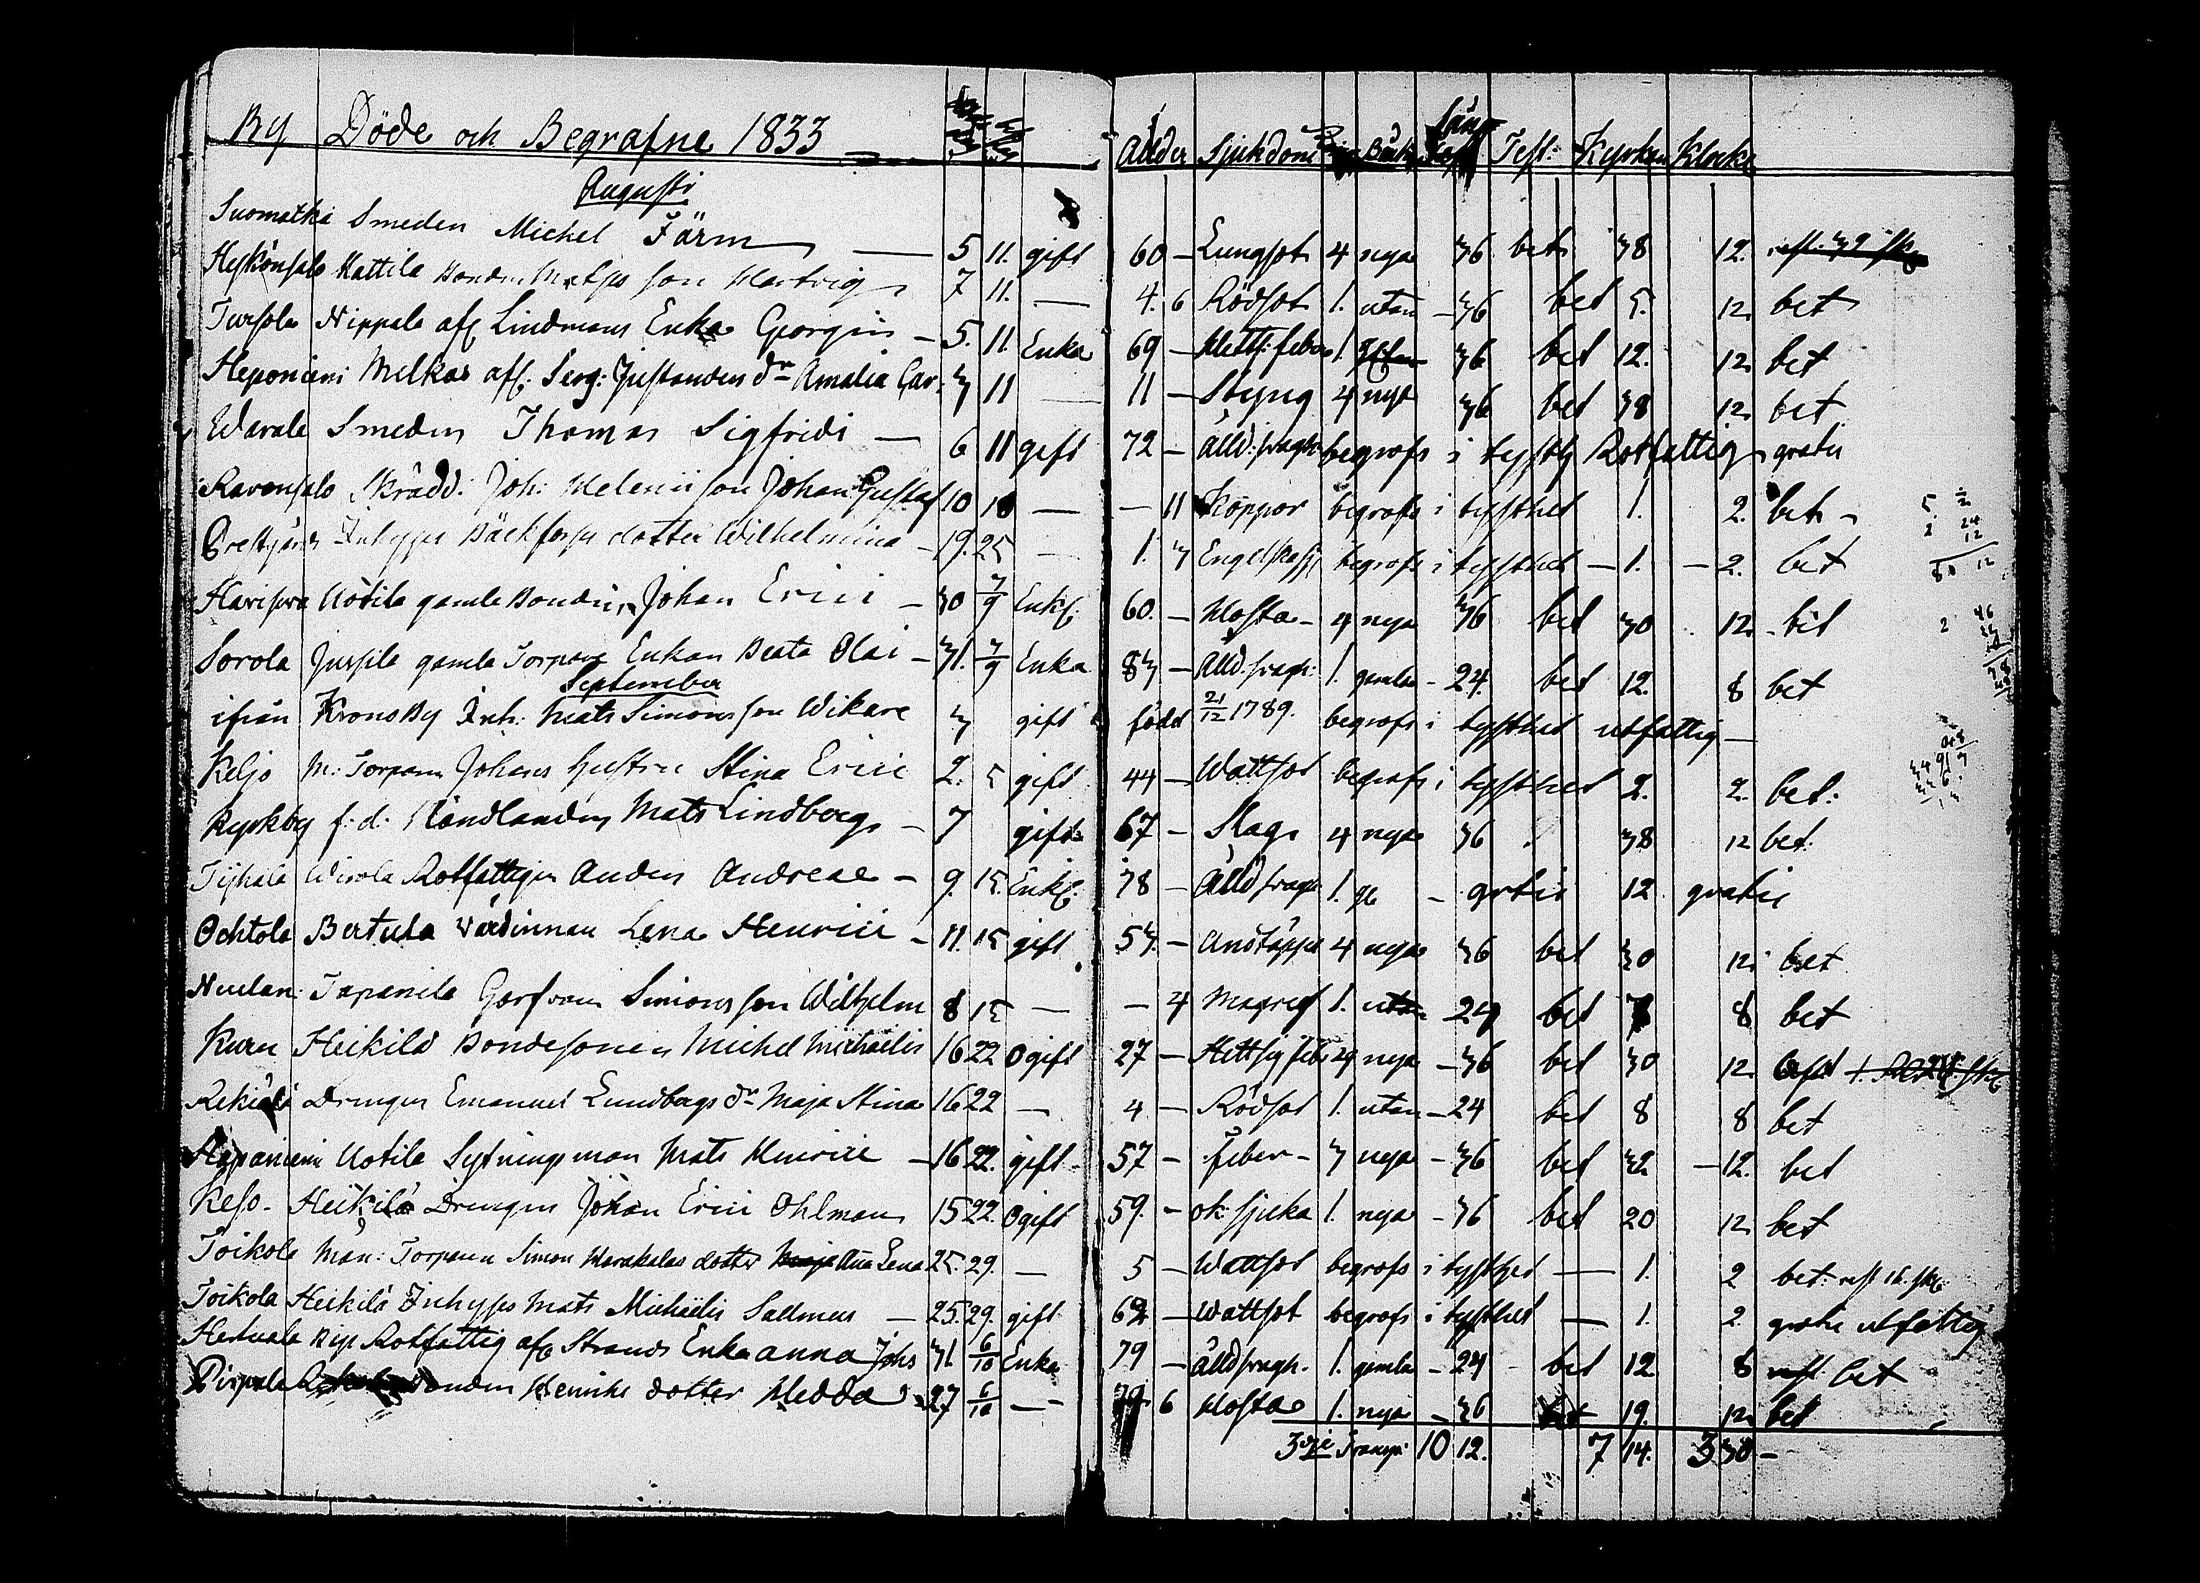 By Döde och Begrafne 1833 Ålder Sjukdom Test: Kyrkan Klocka
Augusti
Suomatka Smeden Michel Färm — 5 11. gift 60 — Lungsot 4 nya 36 bet 38 12.
Hykönsalo Mattila Bonden Matss son Hartvig 7 11. — 4. 6 Rödsot 1. utan — 36 bet 5. 12 bet
Tursola Nippala afl Lindmans Enka Georgin — 5. 11. Enka 69 — Hetts: feber 1. 36 bet 12. 12 bet
Heponiemi Melkas afl: Serg: Justanders dr Amalia Car: 3 11 — 11 — Styng 4 nya 36 bet 38 12 bet
Warala Smeden Thomas Sigfridi — 6 11 gift 72 — Ålld: svagh begrofs i tysth Rotfattig gratis
Ravansalo Skrädd: Joh: Helenii son Johan Gustaf 10 18 — — 11 Koppor begrofs i tysthet 1. 2. bet
Prestgårds Inhyses Bäckfors dotter Wilhelmina — 19. 25 — 1. 3 Engelska sj begrofs i tysthet — 1. — 2. bet
Harisova Uotila gamle Bonden Johan Erici — 30 7/9 Enkl. 60. — Hosta — 4 nya 36 bet 30 12 bet
Sorola Jussila gamla Torpare Enkan Beata Olai — 31. 7/9 Enka 83 — Ålld. svagh: 1. gamla — 24. bet 12. 8 bet
September
ifrån Kronoby Inh: Mats Simons son Wikare 3 gift född 21/12 1789. begrofs i tysthet utfattig —
Keljo M: Torparn Johans hustru Stina Erici 2. 5 gift 44 — Wattsot begrofs i tysthet 2. 2. bet:
Kyrkby f: d: Handlanden Mats Lindberg — 7 gift 67 — Slag 4 nya 36 38 12 bet.
Wirola Rotfattigen Anders Andreae — 9. 15. Enkl. 78 — Ålld svagh 1. ge — gratis 12 gratis
Ochtola Bertula Värdinnan Lena Henrici — 11. 15 gift 53. — Andtäppa 4 nya 36 bet 30 12 bet
Tapanila Garfvarn Simons son Wilhelm 8 15 — — 4 Magref 1. utan — 24 bet 8 8 bet
Kuru Heikilä Bondesonen Michel Michaelis 16 22 Ogift 27 — Hettsig feb 4 nya — 36 bet 30 12.
Rekiälä Drengen Emanuel Lundbergs dr Maja Stina 16 22 — 4 — Rödsot 1. utan — 24 bet 8 8 bet
Heponiemi Uotila Sytningsman Mats Henrici — 16 22. gift 57 — Feber — 3 nya — 36 bet 32 — 12. bet
Keso — Heikilä Drengen Johan Erici Ohlman 15 22. Ogift 59. — ok: sjuka 1. nya — 36 bet 20 12 bet
Toikola Män: Torparen Simon Harakalas dotter Maja Ana Lena 25. 29. — 5 — Wattsot begrofs i tysthet — 1. 2 bet: rest 16. sk.
Toikola Heikilä Inhyses Mats Michaelis Sallmen — 25. 29. gift 62 — Wattsot begrofs i tysthet — 1. 2 gratis utfattig
Hertuala Rotfattig afl Strands Enka Anna Johs 31 6/10 Enka 79 — Ålld svagh. 1. gamla — 24 — bet 12 8 bet
Pirpula Bonden Henriks dotter Hedda 27 6/10 — 6 Hosta 1. nya — 36 bet 19. 12 bet
10 12. 7 14. 3 30 —